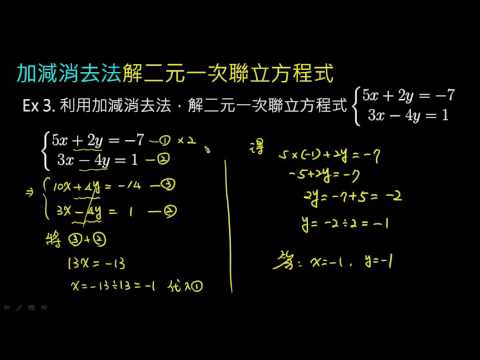 加減消去法解二元一次聯立方程式
Ex 3. 利用加減消去法，解二元一次聯立方程式 { 5x + 2y = −7
3x − 4y = 1
{ 5x + 2y = −7 —① ×2
3x − 4y = 1 —②
⇒ { 10x + 4y = −14 —③
3x − 4y = 1 —②
將 ③+②
13x = −13
x = −13÷13 = −1 代入①
得
5×(−1)+2y = −7
−5+2y = −7
2y = −7+5 = −2
y = −2÷2 = −1
答: x=−1, y=−1